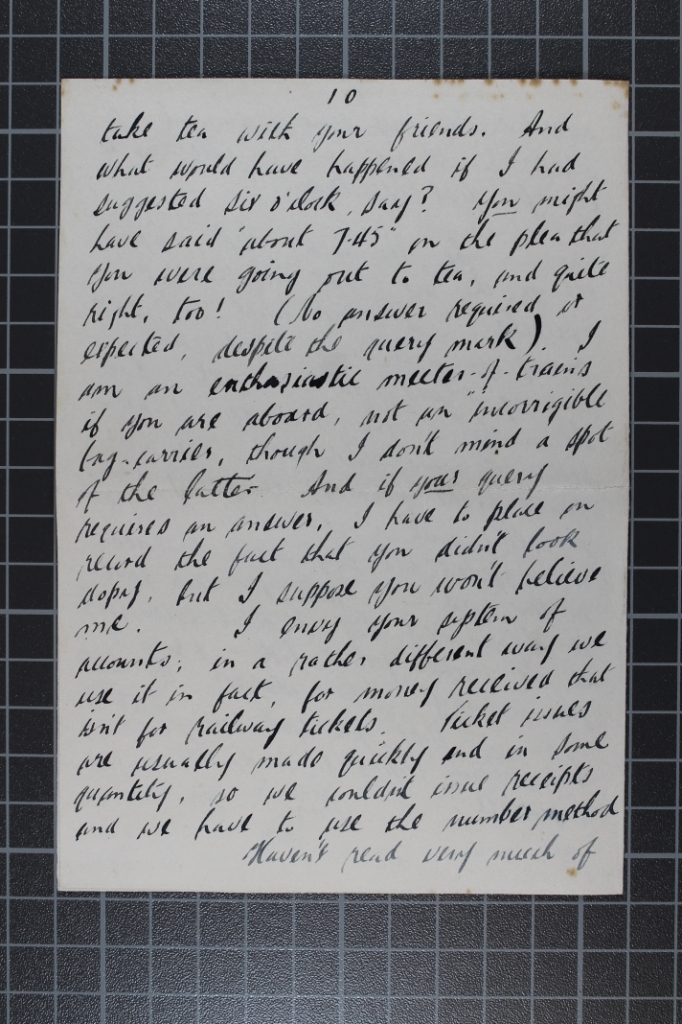 10
take tea with your friends. And
what would have happened if I had
suggested six o'clock, say? You might
have said "about 7-45" on the plea that
you were going out to tea, and quite
right, too! (No answer required or
expected, despite the query mark). I
am an enthusiastic meeter-of-trains
if you are aboard, not an "incorrigible
bag-carrier, though I don't mind a spot
of the latter. And if your query
requires an answer, I have to place on
record the fact that you didn't look
dopey, but I suppose you won't believe
me. I envy your system of
accounts; in a rather different way we
use it in fact, for money received that
isn't for railway tickets. Ticket issues
are usually made quickly and in some
quantity, so we couldn't issue receipts
and we have to use the number method
Haven't read very much of